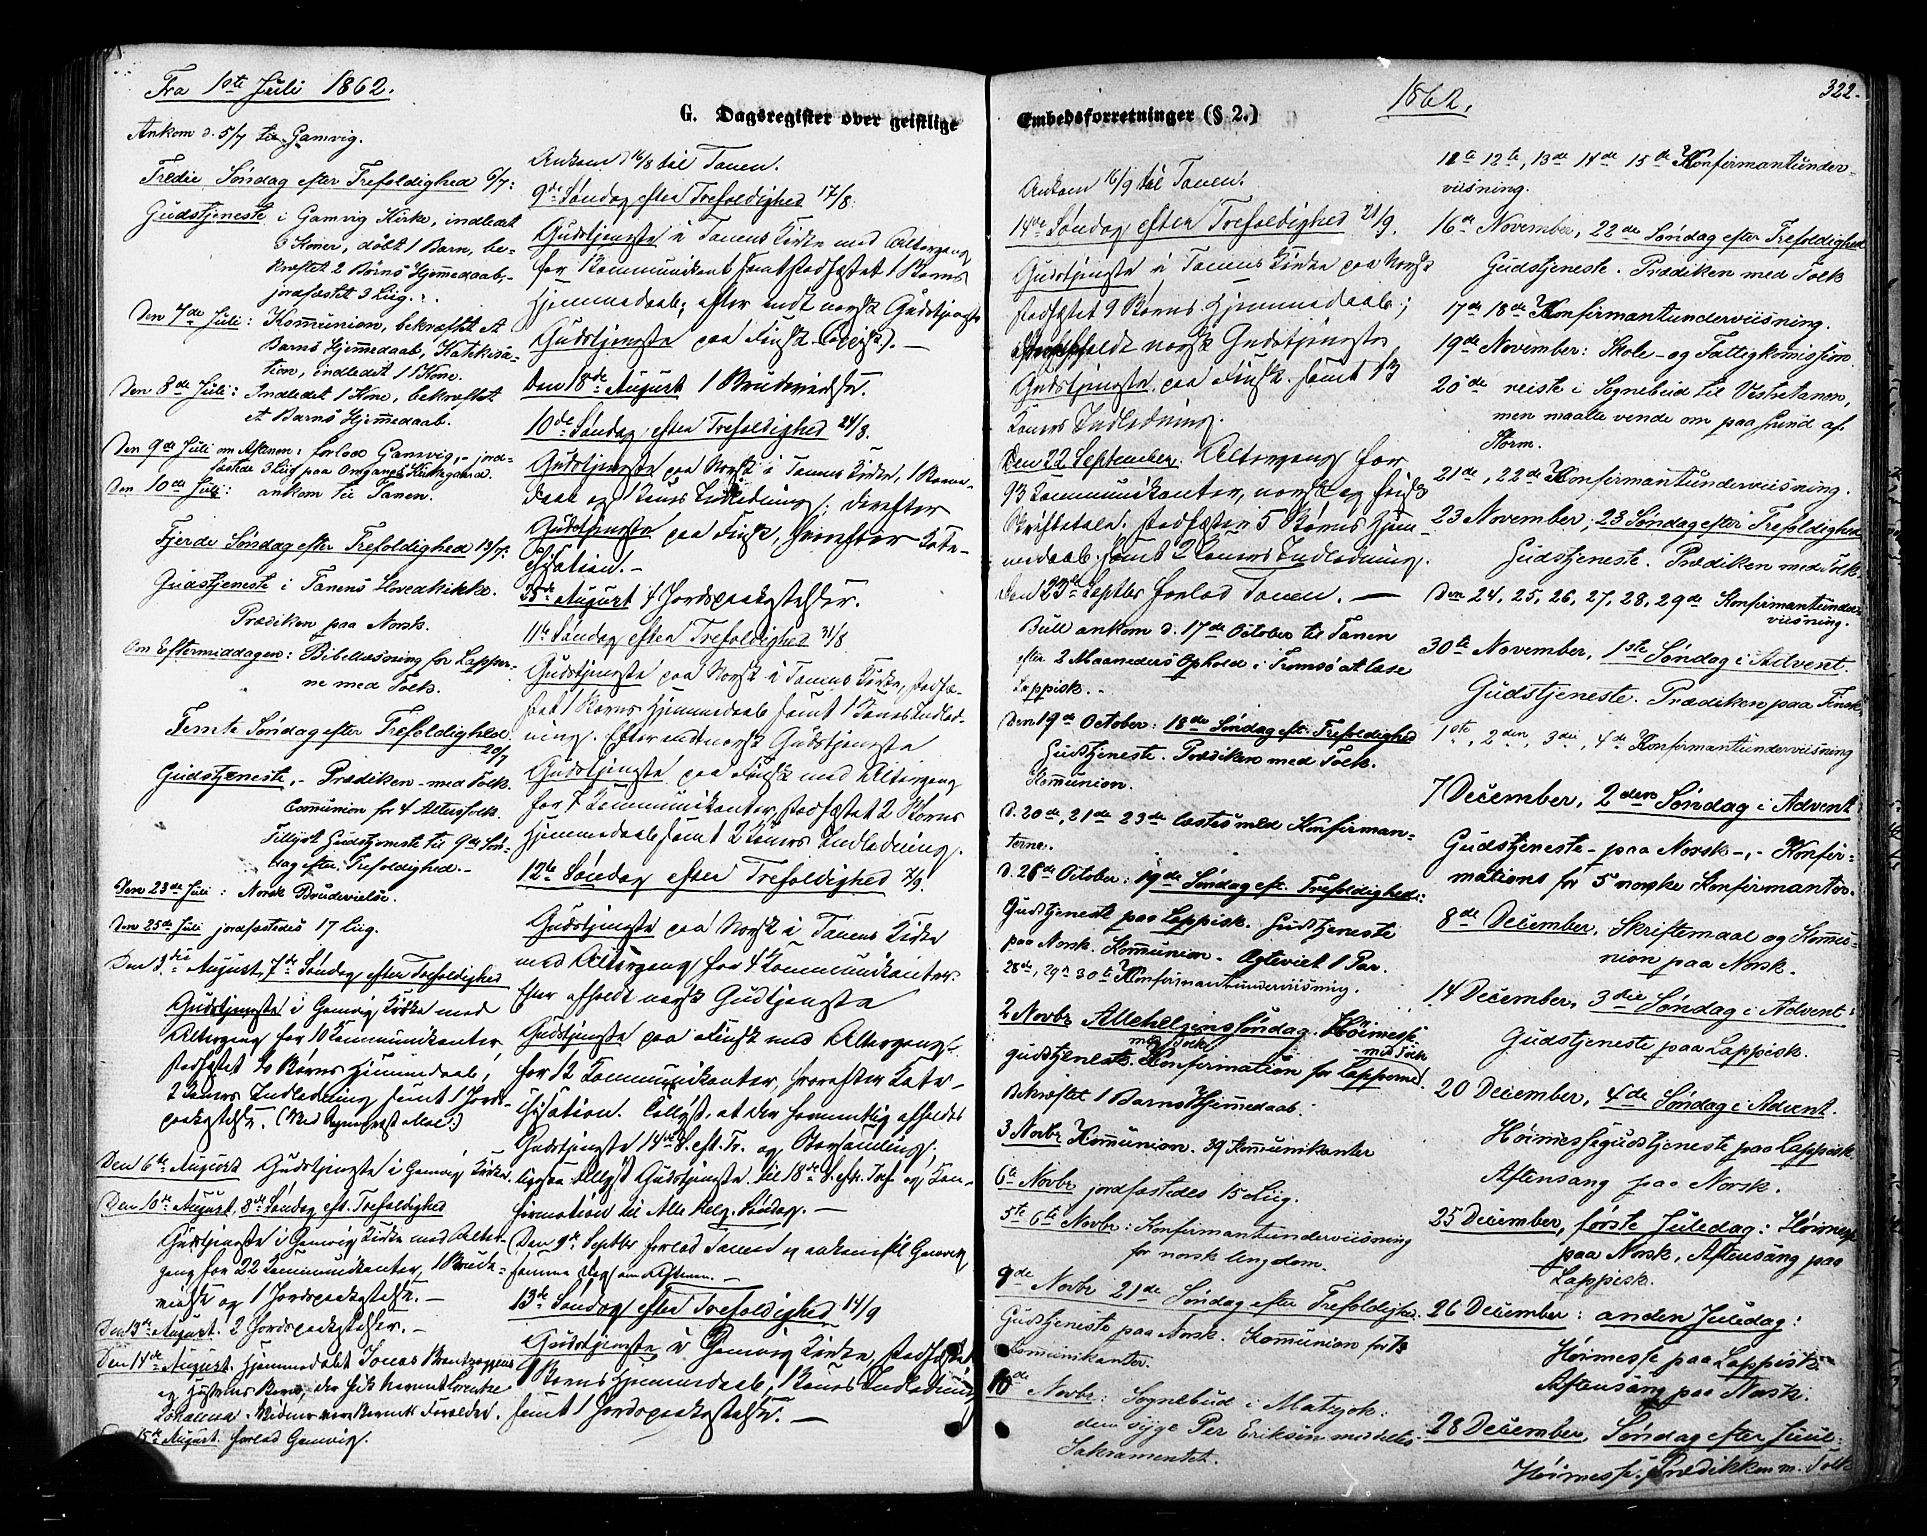 Fra 1ste Juli 1862.
G. Dagsregister over geistlige
Ankom d. 5/7 til Gamvig.
Tredie Søndag efter Trefoldighed 6/7:
Gudstjeneste i Gamvig Kirke, indledet
3 Koner, døbt 1 Barn, be-
kræftet 2 Børns Hjemmedaab,
jordfæstet 3 Liig.
Den 7de Juli: Kommunion, bekræftet et
Barns Hjemmedaab, Katekisa-
tion, indledet 1 Kone.
Den 8de Juli: Indledet 1 Kone, bekræftet
et Barns Hjemmedaab.
Den 9de Juli om Aftenen: forlod Gamvig, jord-
fæstede 3 Liig paa Omgangs Kirkegaard.
Den 10de Juli: ankom til Tanen.
Fjerde Søndag efter Trefoldighed 13/7:
Gudstjeneste i Tanens Hovedkirke.
Prædiken paa Norsk.
Om Eftermiddagen: Bibellæsning for Lapper-
ne med Tolk.
Femte Søndag efter Trefoldighed
20/7
Gudstjeneste, - Prædiken med Tolk.
Communion for 4 Altersfolk.
Tillyst Gudstjeneste til 9de Søn-
dag efter Trefoldighed.-
Den 23de Juli: Norsk Brudevielse.
Den 25de Juli jordfæstedes 17 Liig.
Den 3die August, 7de Søndag efter Trefoldighed
Gudstjeneste i Gamvig Kirke med
Altergang for 10 Kommunikanter,
stadfæstet Børns Hjemmedaab,
2 Koners Indledning samt 1 Jords-
paakastelse.
Den 6te August Gudstjeneste i Gamvig Kirke.
Den 10de August, 8de Søndag eft. Trefoldighed
Gudstjeneste i Gamvig Kirke med Alter-
gang for 22 Kommunikanter, 1 Brude-
vielse og 1 Jordspaakastelse. -
Den 13de August. 2 Jordspaakastelser. -
Den 14de August. Hjemmedøbt Jonas
og Hustrues Barn, der fik Navnet
Johanna.
15de August. forlod Gamvig.
Ankom d 16/8 til Tanen.
9de Søndag efter Trefoldighed 17/8:
Gudstjeneste i Tanens Kirke med Altergang
for 1 Kommunikant samt stadfæstet 1 Barns
Hjemmedaab; efter endt norsk Gudstjeneste
Gudstjeneste paa Finsk (Lappisk). -
Den 18de August 1 Brudevielse.
10de Søndag efter Trefoldighed 24/8.
Gudstjeneste paa Norsk i Tanens Kirke, 1 Barne-
daab og 1 Kones Indledning; derefter
Gudstjeneste paa Finsk, hvorefter Kate-
chisation. -
25de August 4 Jordspaakastelser.
11te Søndag efter Trefoldighed 31/8
Gudstjeneste paa Norsk i Tanens Kirke, stadfæ-
stet 1 Barns Hjemmedaab samt 1 Kones Indled-
ning. Efter endt norsk Gudstjeneste
Gudstjeneste paa Finsk med Altergang
for 7 Kommunikanter, stadfæstet 2 Børns
Hjemmedaab samt 2 Koners Indledning.
12te Søndag efter Trefoldighed 7/9.
Gudstjeneste paa Norsk i Tanens Kirke
med Altergang for 4 Kommunikanter.
Efter afholdt norsk Gudstjeneste
Gudstjeneste paa Finsk med Altergang
for 12 Kommunikanter, hvorefter Kate-
chisation. Tillyst, at der sammenlig afholdes
Gudstjeneste 14de S. eft. Tr. og
ligesaa tillyst Gudstjeneste til 18de S. eft. Tref. og Kon-
firmation til Alle Helg. Søndag. -
Den 9de Septbr forlod Tanen og ankom til Gamvig
samme Dag om Aftenen. -
13de Søndag efter Trefoldighed 14/9
Gudstjeneste i Gamvig Kirke, stadfæstet
1 Barns Hjemmedaab, 1 Kones Indledning
samt 1 Jordspaakastelse. -
Embedsforretninger (§ 2.)
1862.
322.
Ankom 16/9 til Tanen.
14de Søndag efter Trefoldighed 21/9.
Gudstjeneste i Tanens Kirke paa Norsk
stadfæstet 9 Børns Hjemmedaab;
norsk Gudstjeneste
Gudstjeneste paa Finsk samt 13
Koners Indledning.
Den 22 September. Altergang for
93 Kommunikanter, norsk og finsk
Skriftetale. Stadfæstet 5 Børns Hjem-
medaab samt 2 Koners Indledning.
Den 23de Septbr forlod Tanen. -
Bull ankom d. 17de October til Tanen
efter 2 Maaneders Ophold i Tromsø at læse
Lappisk. -
Den 19de October: 18de Søndag eft. Trefoldighed
Gudstjeneste. Prædiken med Tolk.
Kommunion.
D. 20de, 21de 23de læstes med Konfirman-
terne.
D. 26de October: 19de Søndag eft. Trefoldighed:
Gudstjeneste paa Lappisk. Gudstjeneste
paa Norsk. Kommunion. Ægteviet 1 Par.
28de, 29de 30te Konfirmantunderviisning.
2 Novbr Allehelgens Søndag. Høimesse
gudstjeneste med Tolk. Konfirmation for Lapperne med Tolk.
Bekræftet 1 Barns Hjemmedaab.
3 Novbr Kommunion. 39 Kommunikanter
6te Novbr jordfæstedes 15 Liig.
5te 6te Novbr: Konfirmantunderviisning
for norsk Ungdom.
9de Novbr 21de Søndag efter Trefoldighed.
Gudstjeneste paa Norsk. Kommunion for
Kommunikanter.
10de Novbr: Sognebud i Matzjok:
den syge Per Eriksen meddeltes
Sakramentet.
11te 12te, 13de 14de 15de Konfirmantunder-
viisning.
16de November, 22de Søndag efter Trefoldighed
Gudstjeneste. Prædiken med Tolk
17de 18de Konfirmantunderviisning.
19de November: Skole- og Fattigkomission
20de reiste i Sognebud til Vestretanen,
men maatte vende om paa Grund af
Storm.
21de, 22de Konfirmantunderviisning.
23 November, 23 Søndag efter Trefoldighed
Gudstjeneste. Prædiken med Tolk
Den 24, 25, 26, 27, 28, 29de Konfirmantunder-
viisning.
30te November, 1ste Søndag i Advent.
Gudstjeneste. Prædiken paa Finsk
1ste, 2den, 3die, 4de Konfirmantunderviisning
7 December, 2den Søndag i Advent
Gudstjeneste - paa Norsk -,- Konfir-
mations for 5 norske Konfirmanter.
8de December, Skriftemaal og Kommu-
nion paa Norsk.
14 December, 3die Søndag i Advent:
Gudstjeneste paa Lappisk.
20 December, 4de Søndag i Advent.
Høimessegudstjeneste paa Lappisk.
Aftensang paa Norsk.
25 December, første Juledag: Høimesse
paa Norsk, Aftensang paa
Lappisk.
26 December: anden Juledag:
Høimesse paa Lappisk.
Aftensang paa Norsk.
28 December, Søndag efter Juul:
Høimesse. Prædikken m. Tolk